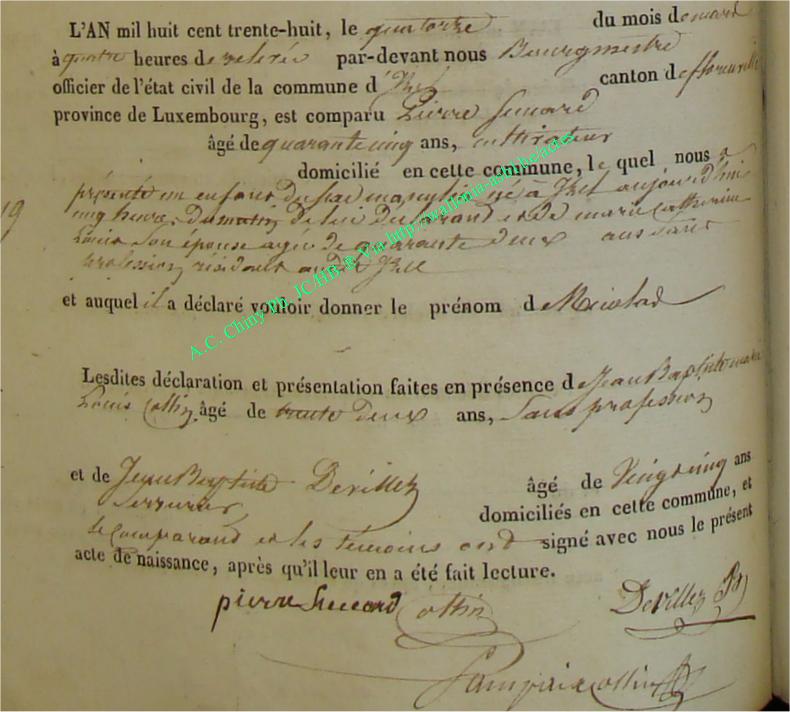 L'AN mil huit cent trente-huit, le quatorze du mois de mars
à quatre heures de relevée par-devant nous Bourgmestre
officier de l'état civil de la commune d'Izel canton de florenville
province de Luxembourg, est comparu Pierre
âgé de quarante cinq ans, cultivateur
domicilié en cette commune, le quel nous a
présenté un enfant du sexe masculin né à Izel aujourd'hui
19
cinq heures du matin de lui déclarant et de marie catherine
Louis son épouse agée de quarante deux ans sans
profession résidant audit Izel
et auquel il a déclaré vouloir donner le prénom de Nicolas
A.C. Chiny Ph. JC.HB. & Via http://wallonia-asbl.be/actes
Lesdites déclaration et présentation faites en présence de Jean Baptiste marie
Louis Collin, âgé de trente deux ans, Sans profession
et de Jean Baptiste Devillez âgé de Vingt cinq ans
Serrurier domiciliés en cette commune, et
le Comparant et les temoins ont signé avec nous le présent
acte de naissance, après qu'il leur en a été fait lecture.
pierre Collin Devillez